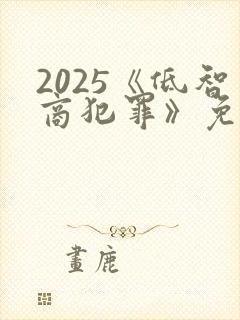 2025《低智
商犯罪》免
畫鹿